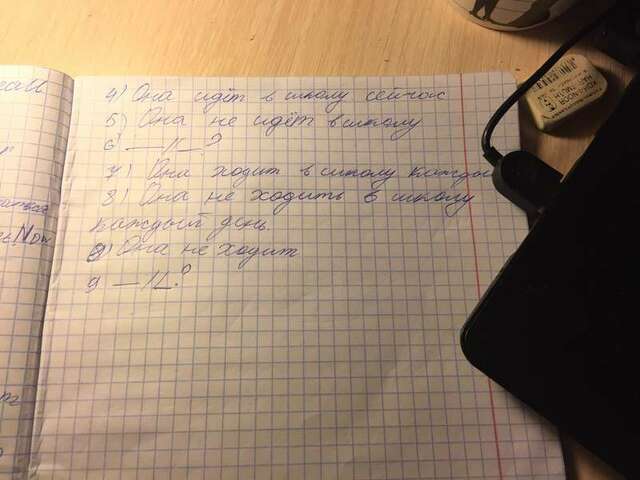 4) Она идёт в школу сейчас
5) Она не идёт в школу
6 —//—?
7) Она ходит в школу каждый
8) Она не ходить в школу
каждый день
8) Она не ходит
9 —//—?